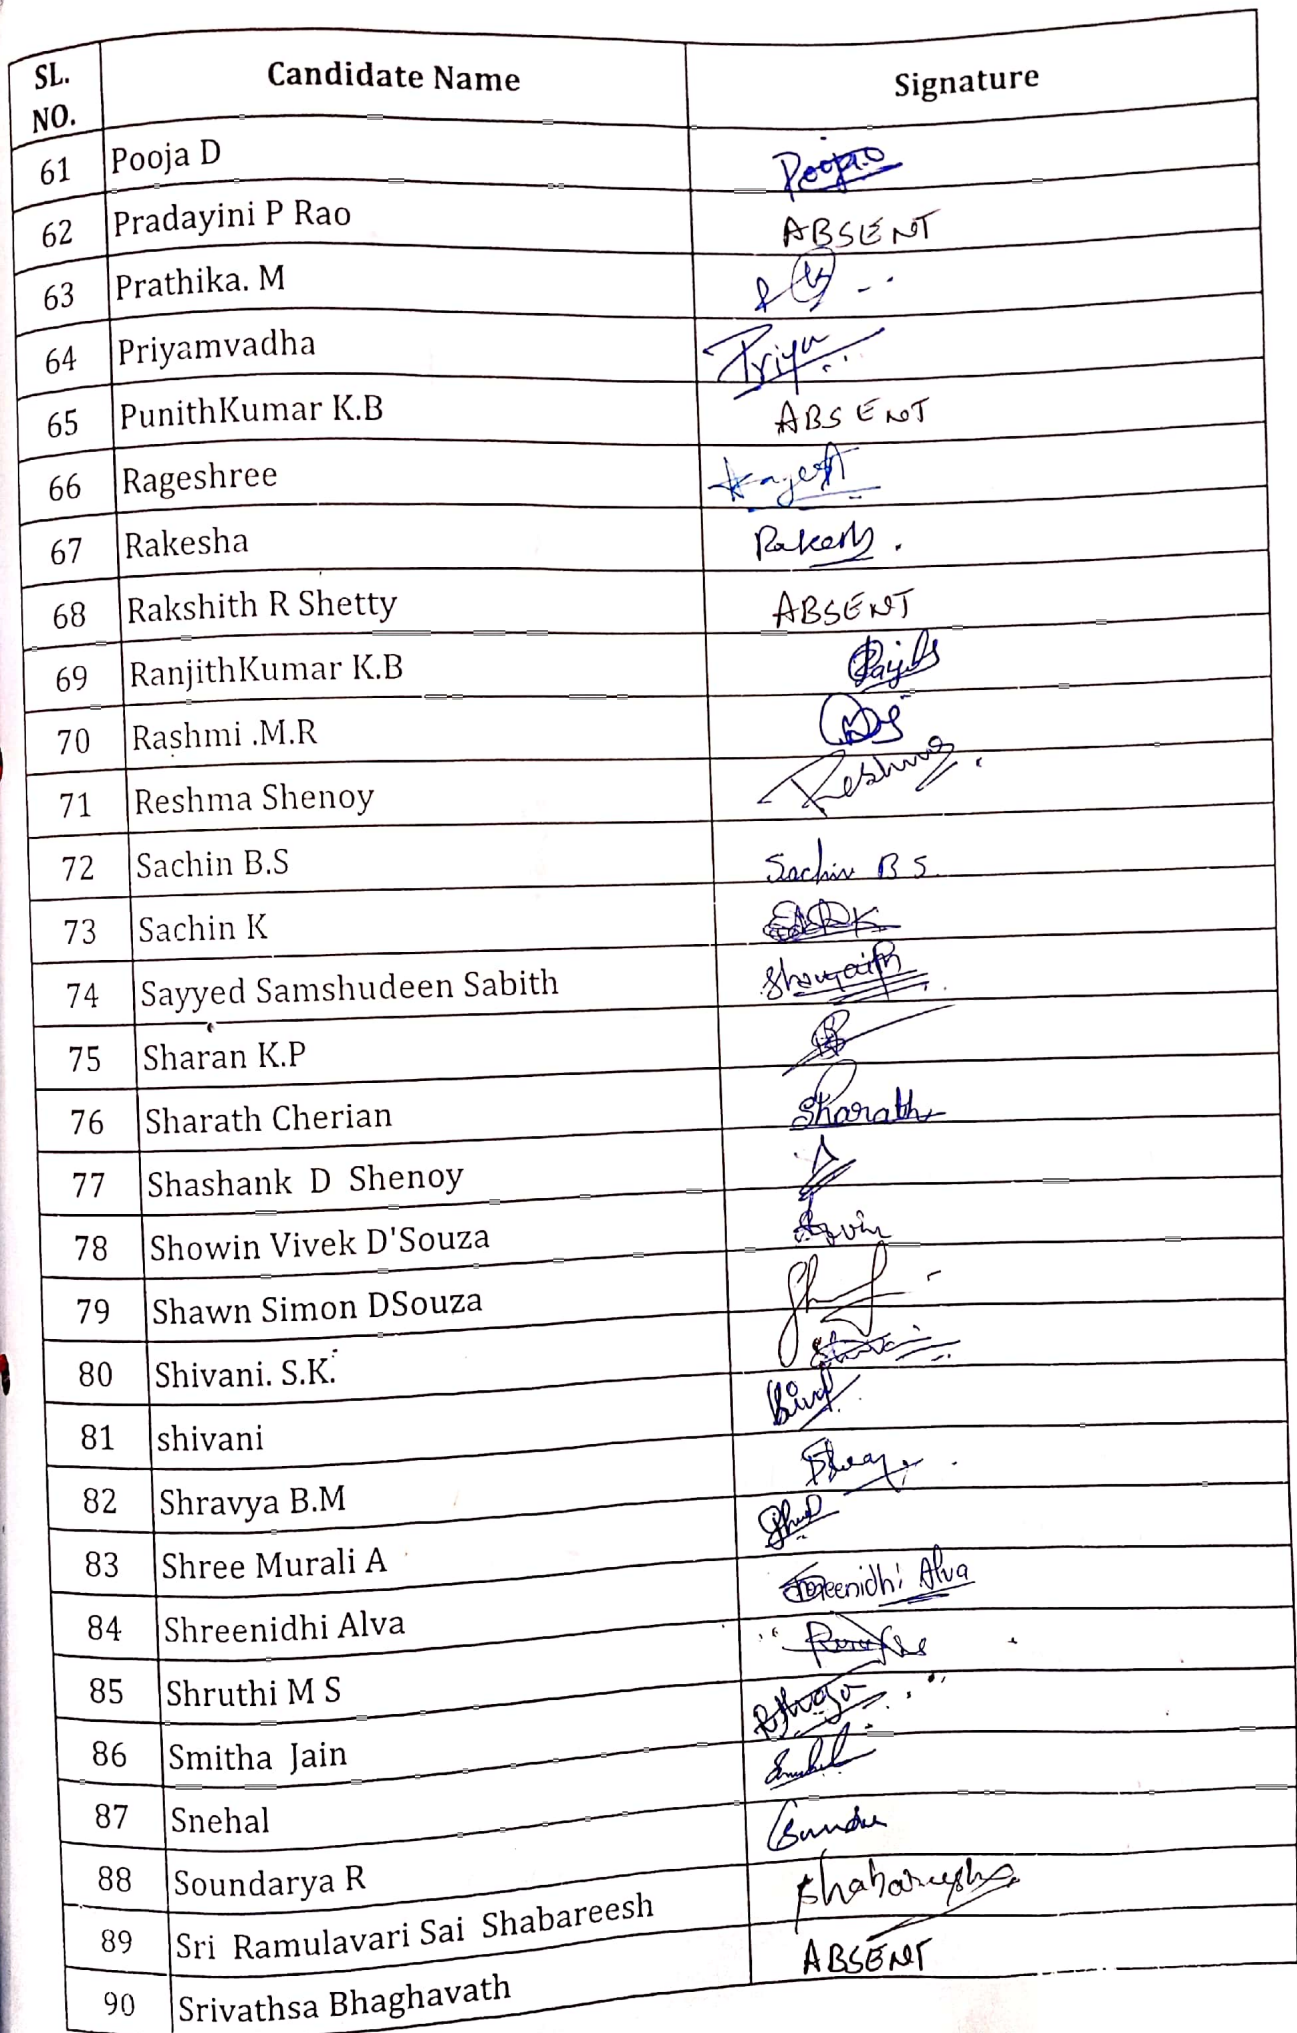 SL. NO. Candidate Name Signature
61 Pooja D Pooja.D
62 Pradayini P Rao ABSENT
63 Prathika. M
64 Priyamvadha Priya
65 PunithKumar K.B ABSENT
66 Rageshree
67 Rakesha Rakesh.
68 Rakshith R Shetty ABSENT
69 RanjithKumar K.B
70 Rashmi .M.R
71 Reshma Shenoy Reshma
72 Sachin B.S Sachin B S
73 Sachin K
74 Sayyed Samshudeen Sabith
75 Sharan K.P
76 Sharath Cherian Sharath
77 Shashank D Shenoy
78 Showin Vivek D'Souza
79 Shawn Simon DSouza
80 Shivani. S.K.
81 shivani
82 Shravya B.M
83 Shree Murali A
84 Shreenidhi Alva Shreenidhi Alva
85 Shruthi M S
86 Smitha Jain
87 Snehal
88 Soundarya R
89 Sri Ramulavari Sai Shabareesh Shabareesh
90 Srivathsa Bhaghavath ABSENT